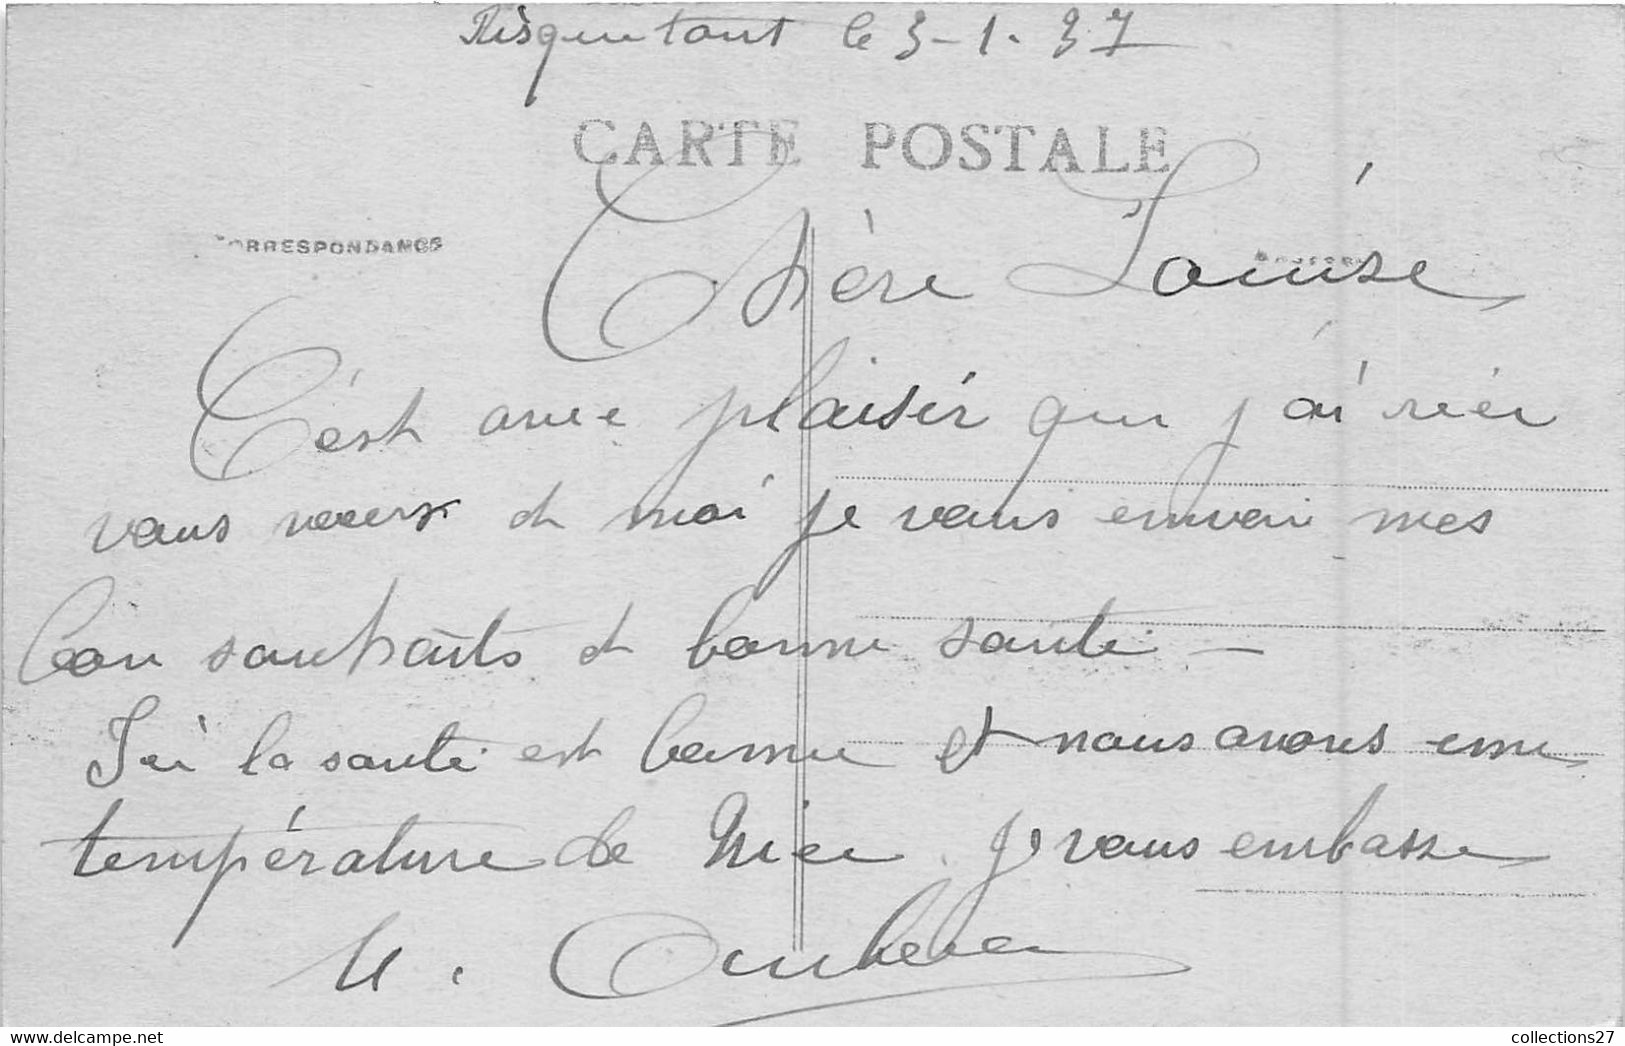 Risquetout le 3-1.37
CARTE POSTALE
CORRESPONDANCE
Chère Louise
C'est avec plaisir que j'ai reçu
vous voeux de moi je vous envoi mes
bon souhaits de bonne santé -
Ici la santé est bonne et nous avons une
température de Nice. Je vous embasse
M.
collections27